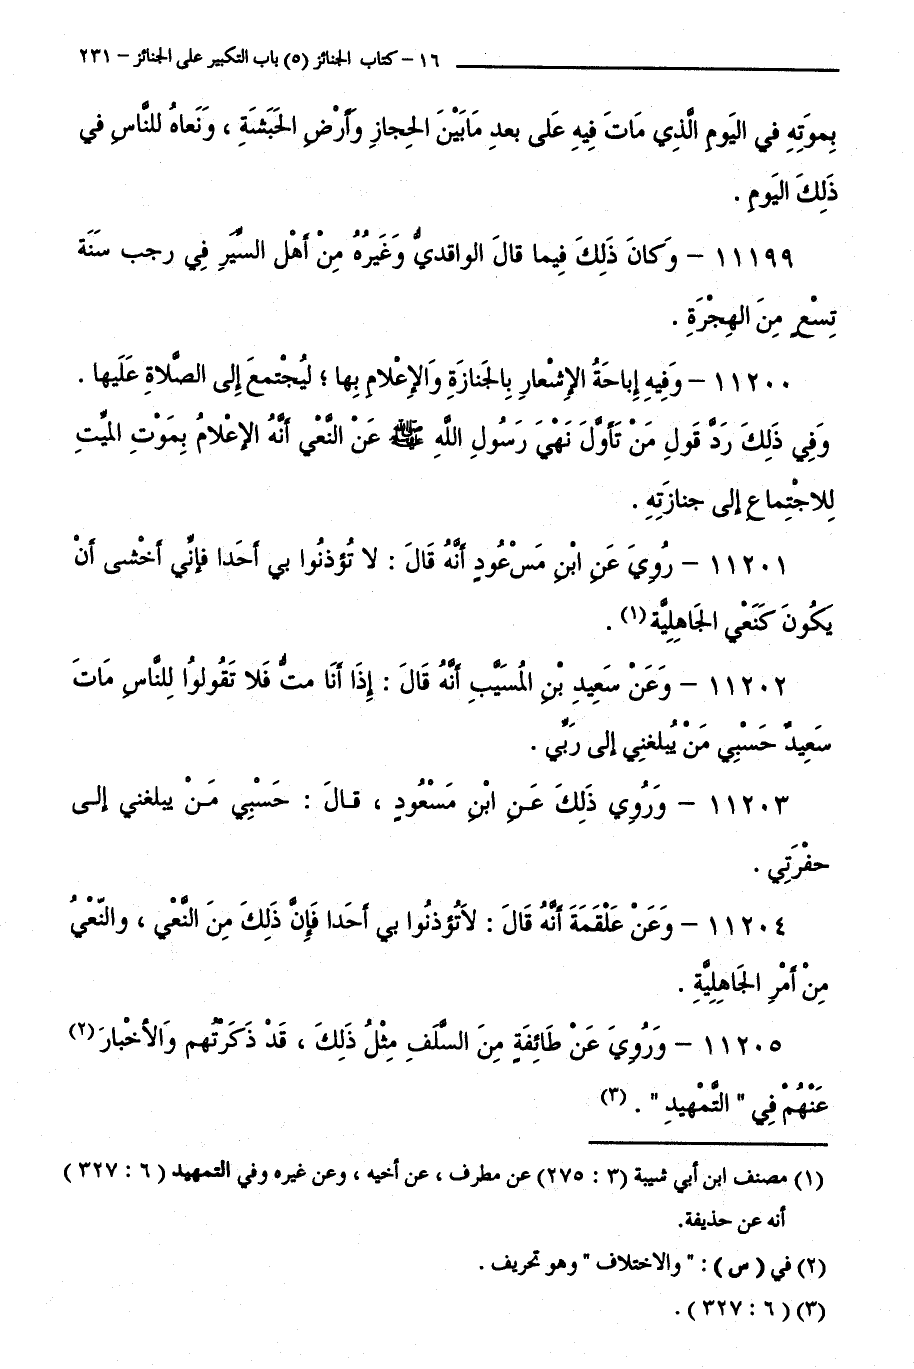 ١٦ – كتاب الجنائز (٥) باب التكبير على الجنائز – ٢٣١
بِموتِهِ في اليَومِ الَّذِي مَاتَ فِيهِ عَلى بعدِ مَابَيْنَ الحِجازِ وَأَرْضِ الحَبَشَةِ ، وَنَعاهُ للنَّاسِ في
ذَلِكَ اليَومِ .
١١١٩٩ – وَكانَ ذَلِكَ فِيما قالَ الواقديُّ وَغَيرُهُ مِنْ أَهْلِ السِّيَرِ فِي رجب سنَة
تِسْعٍ مِنَ الهِجْرَةِ .
١١٢٠٠ – وَفِيهِ إِباحَةُ الإِشْعارِ بِالجَنازَةِ وَالإِعْلامِ بِها ؛ ليُجْتمعَ إِلى الصَّلاةِ عَلَيها .
وَفِي ذَلِكَ رَدَّ قَولِ مَنْ تَأَوَّلَ نَهْيَ رَسُولِ اللَّهِ ﷺ عَنْ النَّعْي أَنَّهُ الإِعْلامُ بِمَوْتِ الميِّتِ
لِلاجْتِماعِ إلى جنازَتِهِ .
١١٢٠١ – رُوِيَ عَنِ ابْنِ مَسْعُودٍ أَنَّهُ قَالَ : لا تُؤذنُوا بي أَحَدا فإِنِّي أَخْشى أَنْ
يَكُونَ كَنَعْيِ الجَاهِلِيَّة(١) .
١١٢٠٢ – وَعَنْ سَعِيدِ بْنِ المُسَيَّبِ أَنَّهُ قَالَ : إِذَا أَنَا متُّ فَلا تَقُولوُا لِلنَّاسِ مَاتَ
سَعِيدٌ حَسْبِي مَنْ يُبلغنِي إلى رَبِّي .
١١٢٠٣ – وَرُوِي ذَلِكَ عَنِ ابْنِ مَسْعُودٍ ، قالَ : حَسْبِي مَنْ يبلغني إلى
حفْرَتِي .
١١٢٠٤ – وَعَنْ عَلْقَمَةَ أَنَّهُ قَالَ : لاَتُؤذنُوا بي أَحَدا فَإِنَّ ذَلِكَ مِنَ النَّعْي ، والنَّعْيُ
مِنْ أَمْرِ الجَاهِلِيَّةِ .
١١٢٠٥ – وَرُوِيَ عَنْ طَائِفَةٍ مِنَ السَّلَفِ مِثْلُ ذَلِكَ ، قَدْ ذَكَرْتُهم وَالأَخْبارَ(٢)
عَنْهُمْ فِي " التَّمْهِيدِ " . (٣)
(١) مصنف ابن أبي شيبة (٣ : ٢٧٥) عن مطرف ، عن أخيه ، وعن غيره وفي التمهيد ( ٦ : ٣٢٧ )
أنه عن حذيفة.
(٢) في ( س ) : " والاختلاف " وهو تحريف .
(٣) ( ٦ : ٣٢٧ ) .